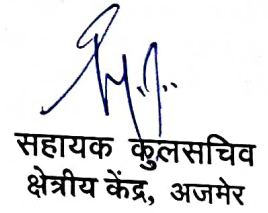 सहायक कुलसचिव
क्षेत्रीय केंद्र, अजमेर